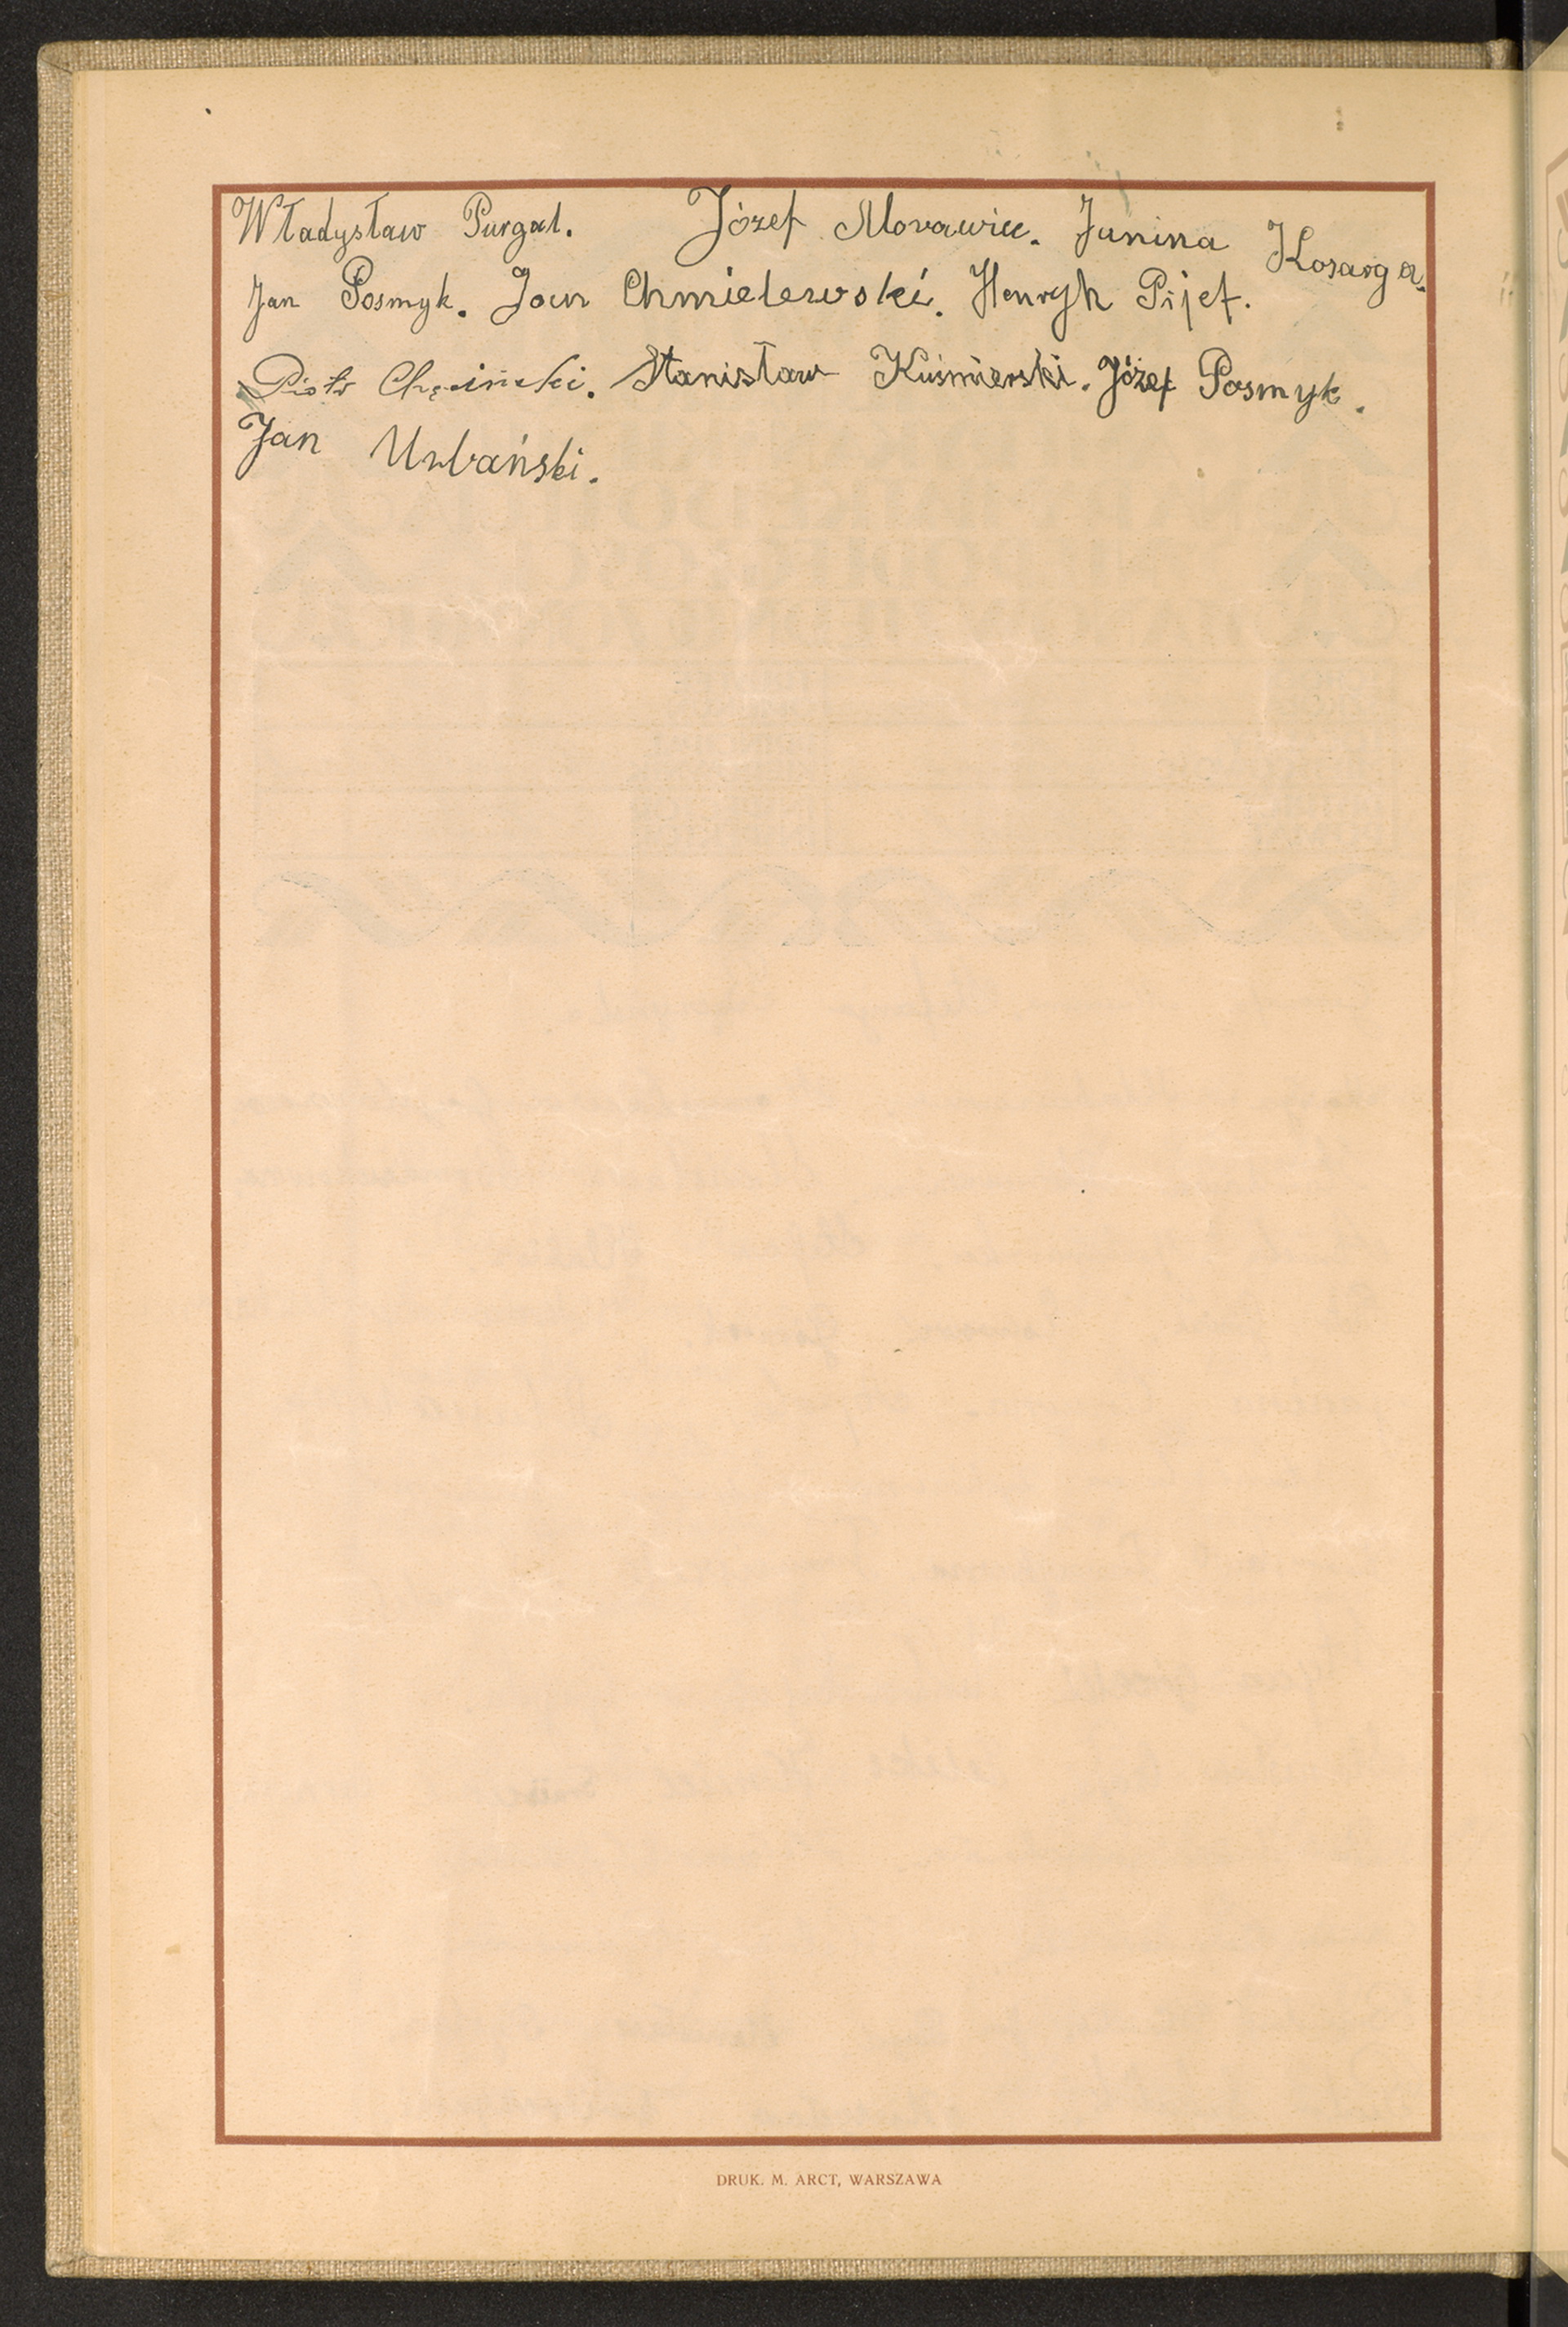 Władysław Purgal. Józef Morawiec. Janina Kosarga.
Jan Posmyk. Jan Chmielewski. Henryk Pijet.
Piotr Chęciński. Stanisław Kuśmierski. Józef Posmyk.
Jan Urbański.
DRUK. M. ARCT, WARSZAWA